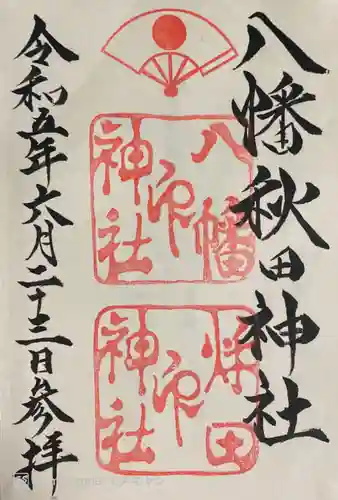 八幡秋田神社
八幡
神社
印
秋田
神社
印
令和五年六月二十三日参拝